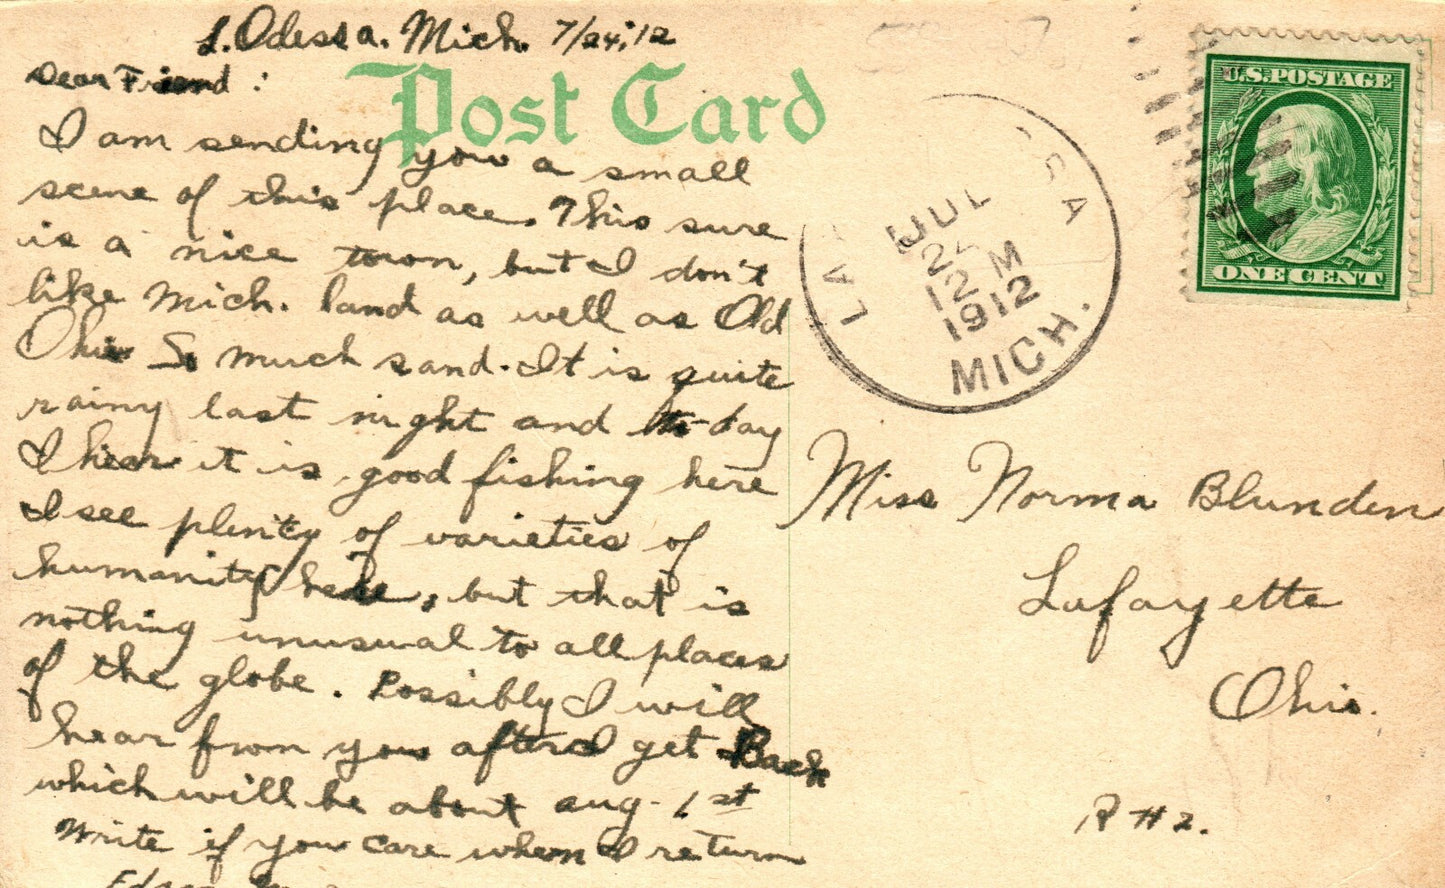 L. Odessa. Mich. 7/24,'12
Dear Friend :
Post Card
I am sending you a small
scene of this place. This sure
is a nice town, but I don't
like Mich. land as well as Old
Ohio So much sand. It is quite
rainy last night and to-day
I hear it is good fishing here
I see plenty of varieties of
humanity here, but that is
nothing unusual to all places
of the globe. Possibly I will
hear from you after I get Back
which will be about Aug. 1st
Write if you care when I return
JUL
12 M
1912
MICH.
U.S. POSTAGE
ONE CENT
Miss Norma Blunden
Lafayette
Ohio.
R # 2.